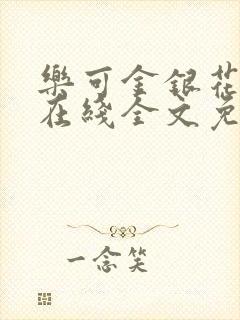 樂可金銀花
在綫全文免
一念笑